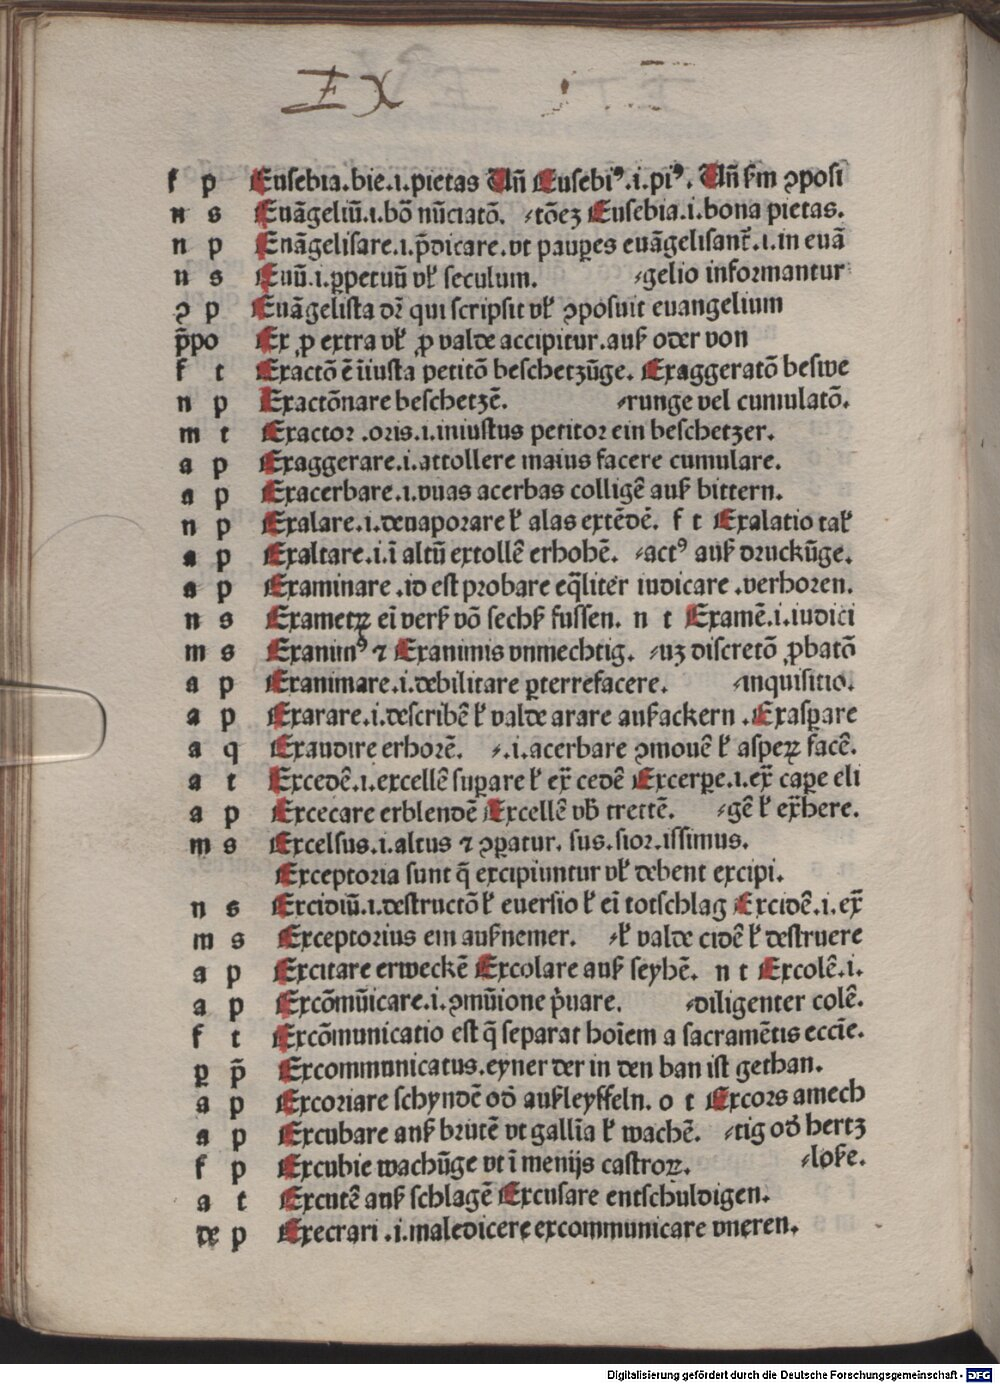 EX
f p Eusebia.bie.i.pietas Uñ Eusebiꝰ.i.piꝰ. Uñ ẜm ꝯposi
n s Euãgeliũ.i.bõ nũciatõ. ⸗tõeꝫ Eusebia.i.bona pietas.
n p Euãgelisare.i.p̄dicare.vt paup̲es euãgelisant᷑.i.in euã
n s Euũ.i.ꝑpetuũ vꝉ seculum. ⸗gelio informantur
ꝯ p Euãgelista dr̃ qui scripsit vꝉ ꝯposuit euangelium
p̃po Ex ꝓ extra vꝉ ꝓ valde accipitur.auß oder von
f t Exactõ ē iīusta petitõ beschetzũge. Exaggeratõ beswe
n p Exactõnare beschetzē. ⸗runge vel cumulatõ.
m t Exactor .oris.i.iniustus petitor ein beschetzer.
a p Exaggerare.i.attollere maius facere cumulare.
a p Exacerbare.i.vuas acerbas colligē auß bittern.
n p Exalare.i.deuaporare ł alas extēdē. f t Exalatio tał
a p Exaltare.i.ī altũ extollē erhohē. ⸗actꝰ auß druckũge.
a p Examinare .id est probare eq̄liter iudicare .verhoren.
n s Exametꝝ eī verß võ sechß fussen. n t Examē.i.iudici
m s Exanimꝰ ⁊ Exanimis vnmechtig. ⸗uꝫ discretõ ꝓbatõ
a p Exanimare.i.debilitare ꝑterrefacere. ⸗inquisitio.
a p Exarare.i.describē ł valde arare außackern .Exasꝑare
a q Exaudire erhorē. ⸗.i.acerbare ꝯmouē ł aspeꝝ facē.
a t Excedē.i.excellē suꝑare ł ex̃ cedē Excerꝑe.i.ex̃ caꝑe eli
a p Excecare erblendē Excellē vb̃ trettē. ⸗gē ł ex̃here.
m s Excelsus.i.altus ⁊ ꝯꝑatur. sus.sior.issimus.
Exceptoria sunt q̄ excipiuntur vꝉ debent excipi.
n s Excidiũ.i.destructõ ł euersio ł eī totschlag Excidē.i.ex̃
m s Exceptorius ein außnemer. ⸗ł valde cidē ł destruere
a p Excitare erweckē Excolare auß seyhē. n t Excolē.i.
a p Excõmũicare.i.ꝯmũione p̓uare. ⸗diligenter colē.
f t Excõmunicatio est q̄ separat hoīem a sacramētis eccīe.
ꝑ p̃ Excommunicatus.eyner der in den ban ist gethan.
a p Excoriare schyndē od̓ außleyffeln. o t Excors amech
a p Excubare auß brutē vt gallīa ł wachē. ⸗tig od̓ hertz
f p Excubie wachũge vt ī menijs castroꝝ. ⸗loße.
a t Excutē auß schlagē Excusare entschuldigen.
de p Execrari .i.maledicere excommunicare vneren.
Digitalisierung gefördert durch die Deutsche Forschungsgemeinschaft - DFG